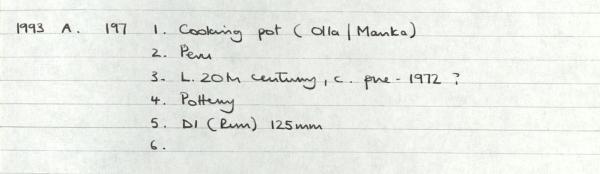 1993 A. 197 1. Cooking pot (Olla | Manka)
2. Peru
3. L. 20th century, c. pre-1972 ?
4. Pottery
5. DI (Rim) 125mm
6.